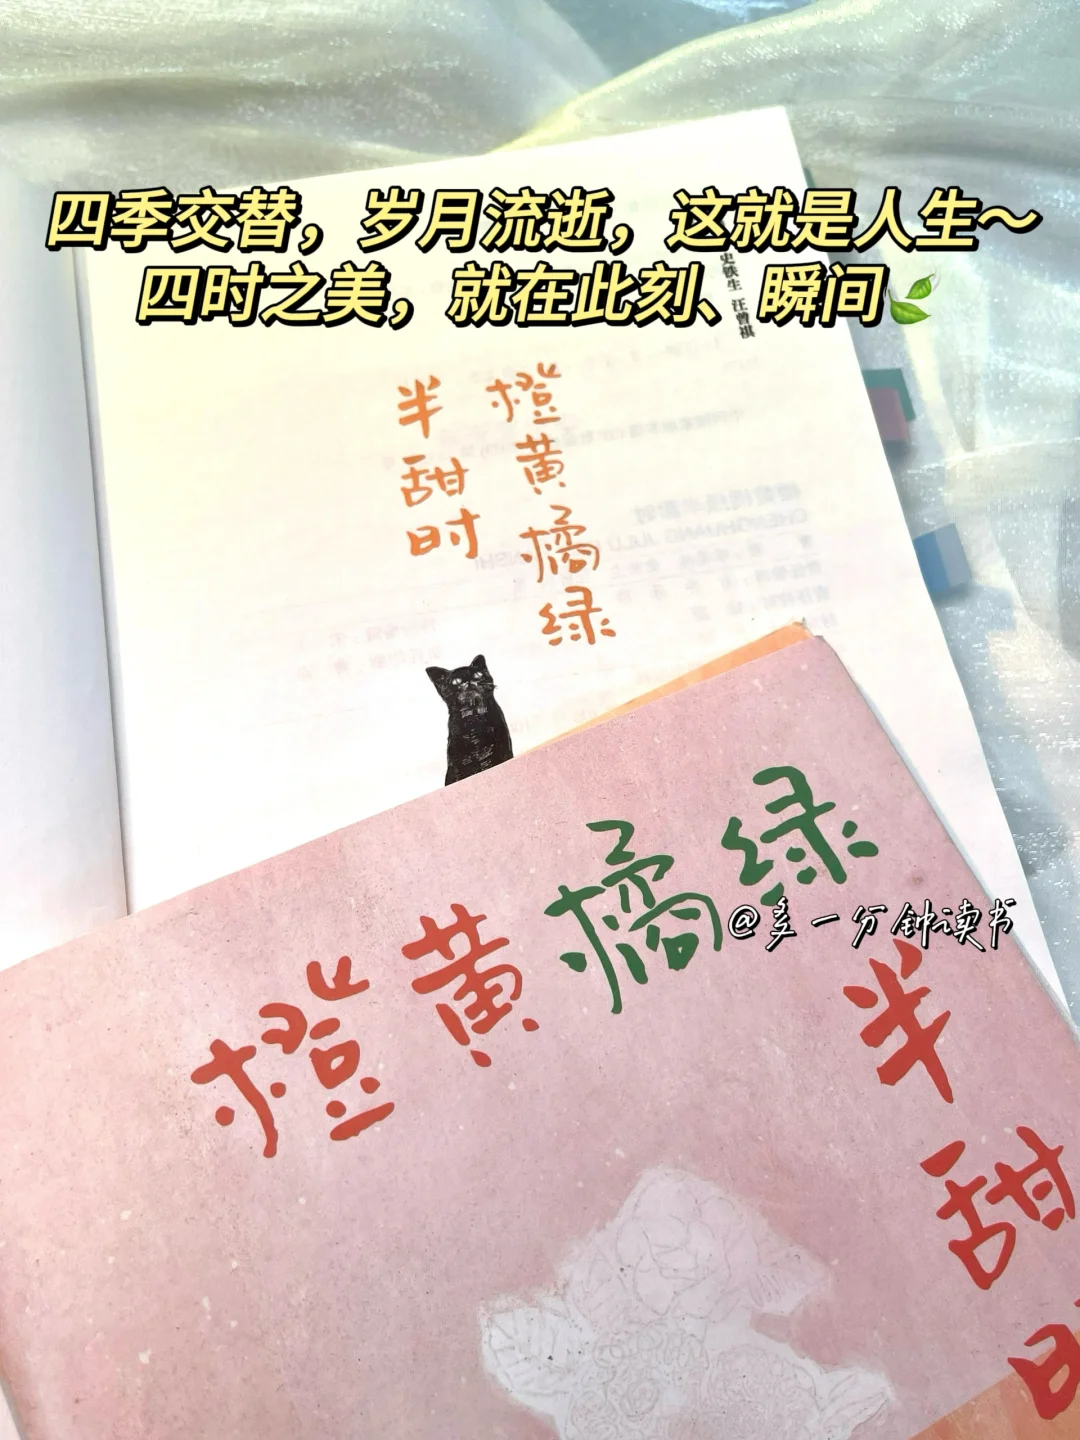 四季交替，岁月流逝，这就是人生～
四时之美，就在此刻、瞬间
史铁生 汪曾祺
橙黄橘绿
半甜时
橙黄橘绿
@多一分钟读书
半甜时